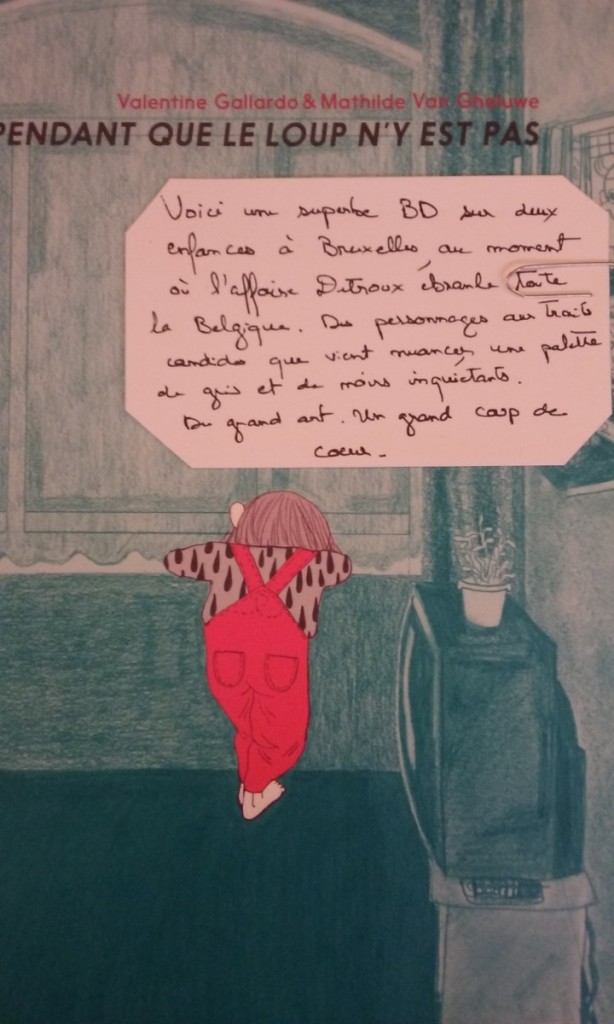 Valentine Gallardo & Mathilde Van Gheluwe
PENDANT QUE LE LOUP N'Y EST PAS
Voici une superbe BD sur deux
enfances à Bruxelles, au moment
où l'affaire Dutroux ébranle toute
la Belgique. Des personnages aux traits
candides que vient nuancer une palette
de gris et de noirs inquiétants.
Du grand art. Un grand coup de
coeur.